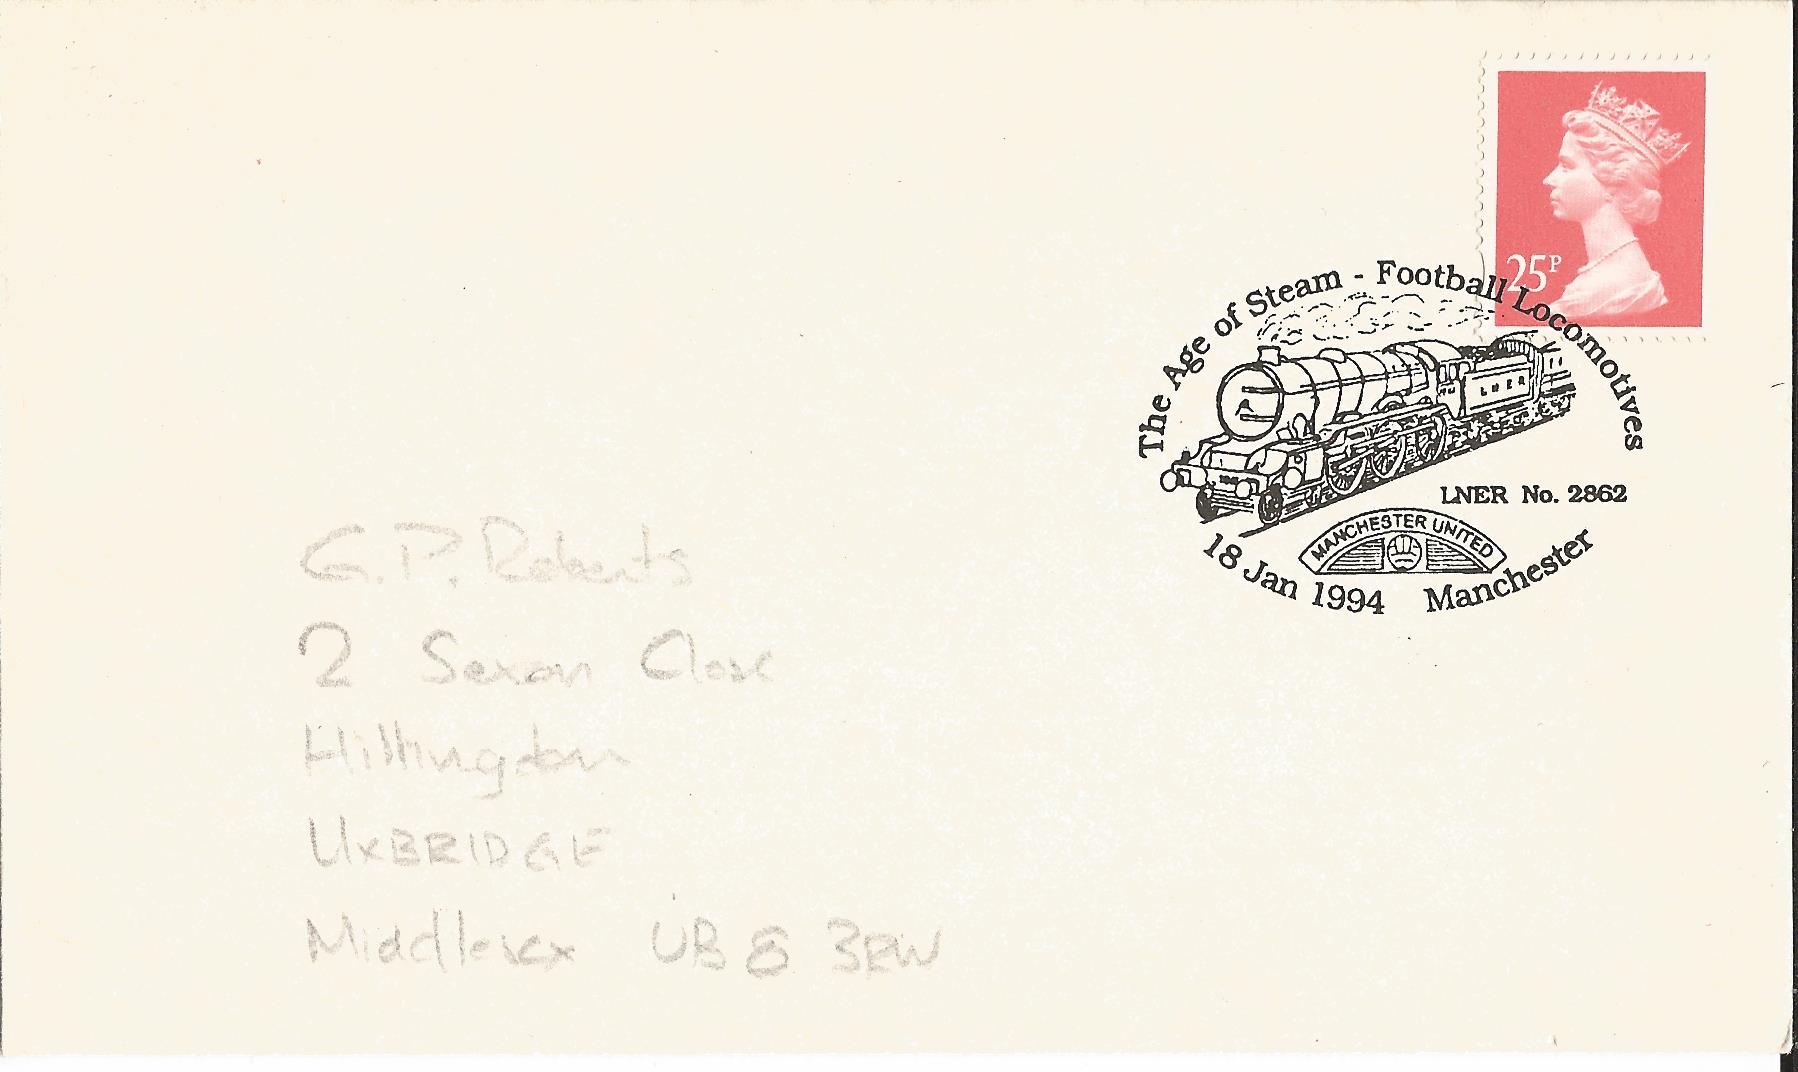 25P
The Age of Steam - Football Locomotives
LNER
LNER No. 2862
MANCHESTER UNITED
18 Jan 1994 Manchester
G.P. Roberts
2 Saxon Close
Hillingdon
UXBRIDGE
Middlesex UB8 3EW